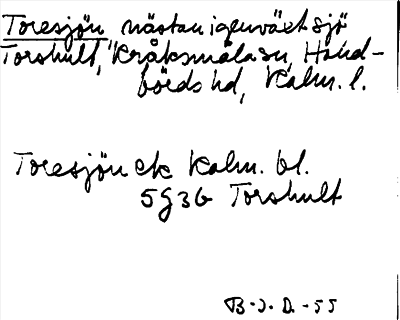 Toresjön nästan igenväxt sjö
Torshult, Kråksmåla sn, Hand-
börds hd, Kalm. l.
Toresjön ek Kalm. bl.
5g3b Torshult
B-J. D. -55